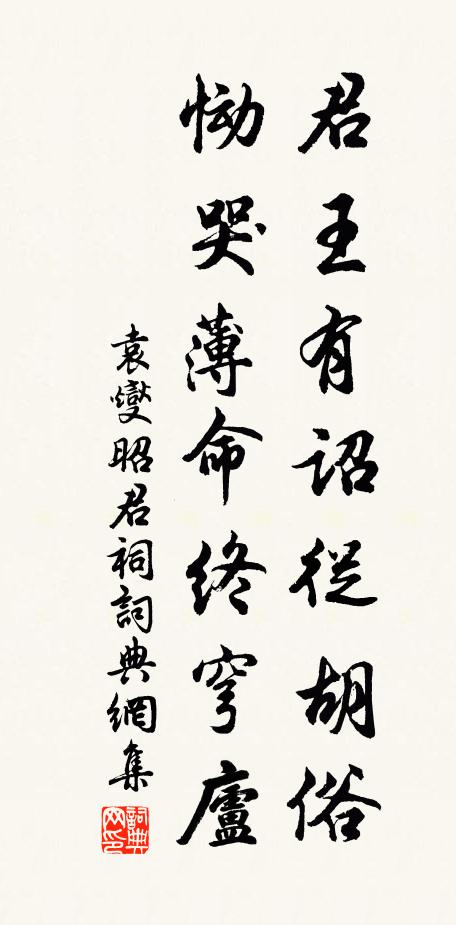 君王有詔從胡俗
慟哭薄命終穹廬
袁燮昭君祠詞典網集
詞典網印